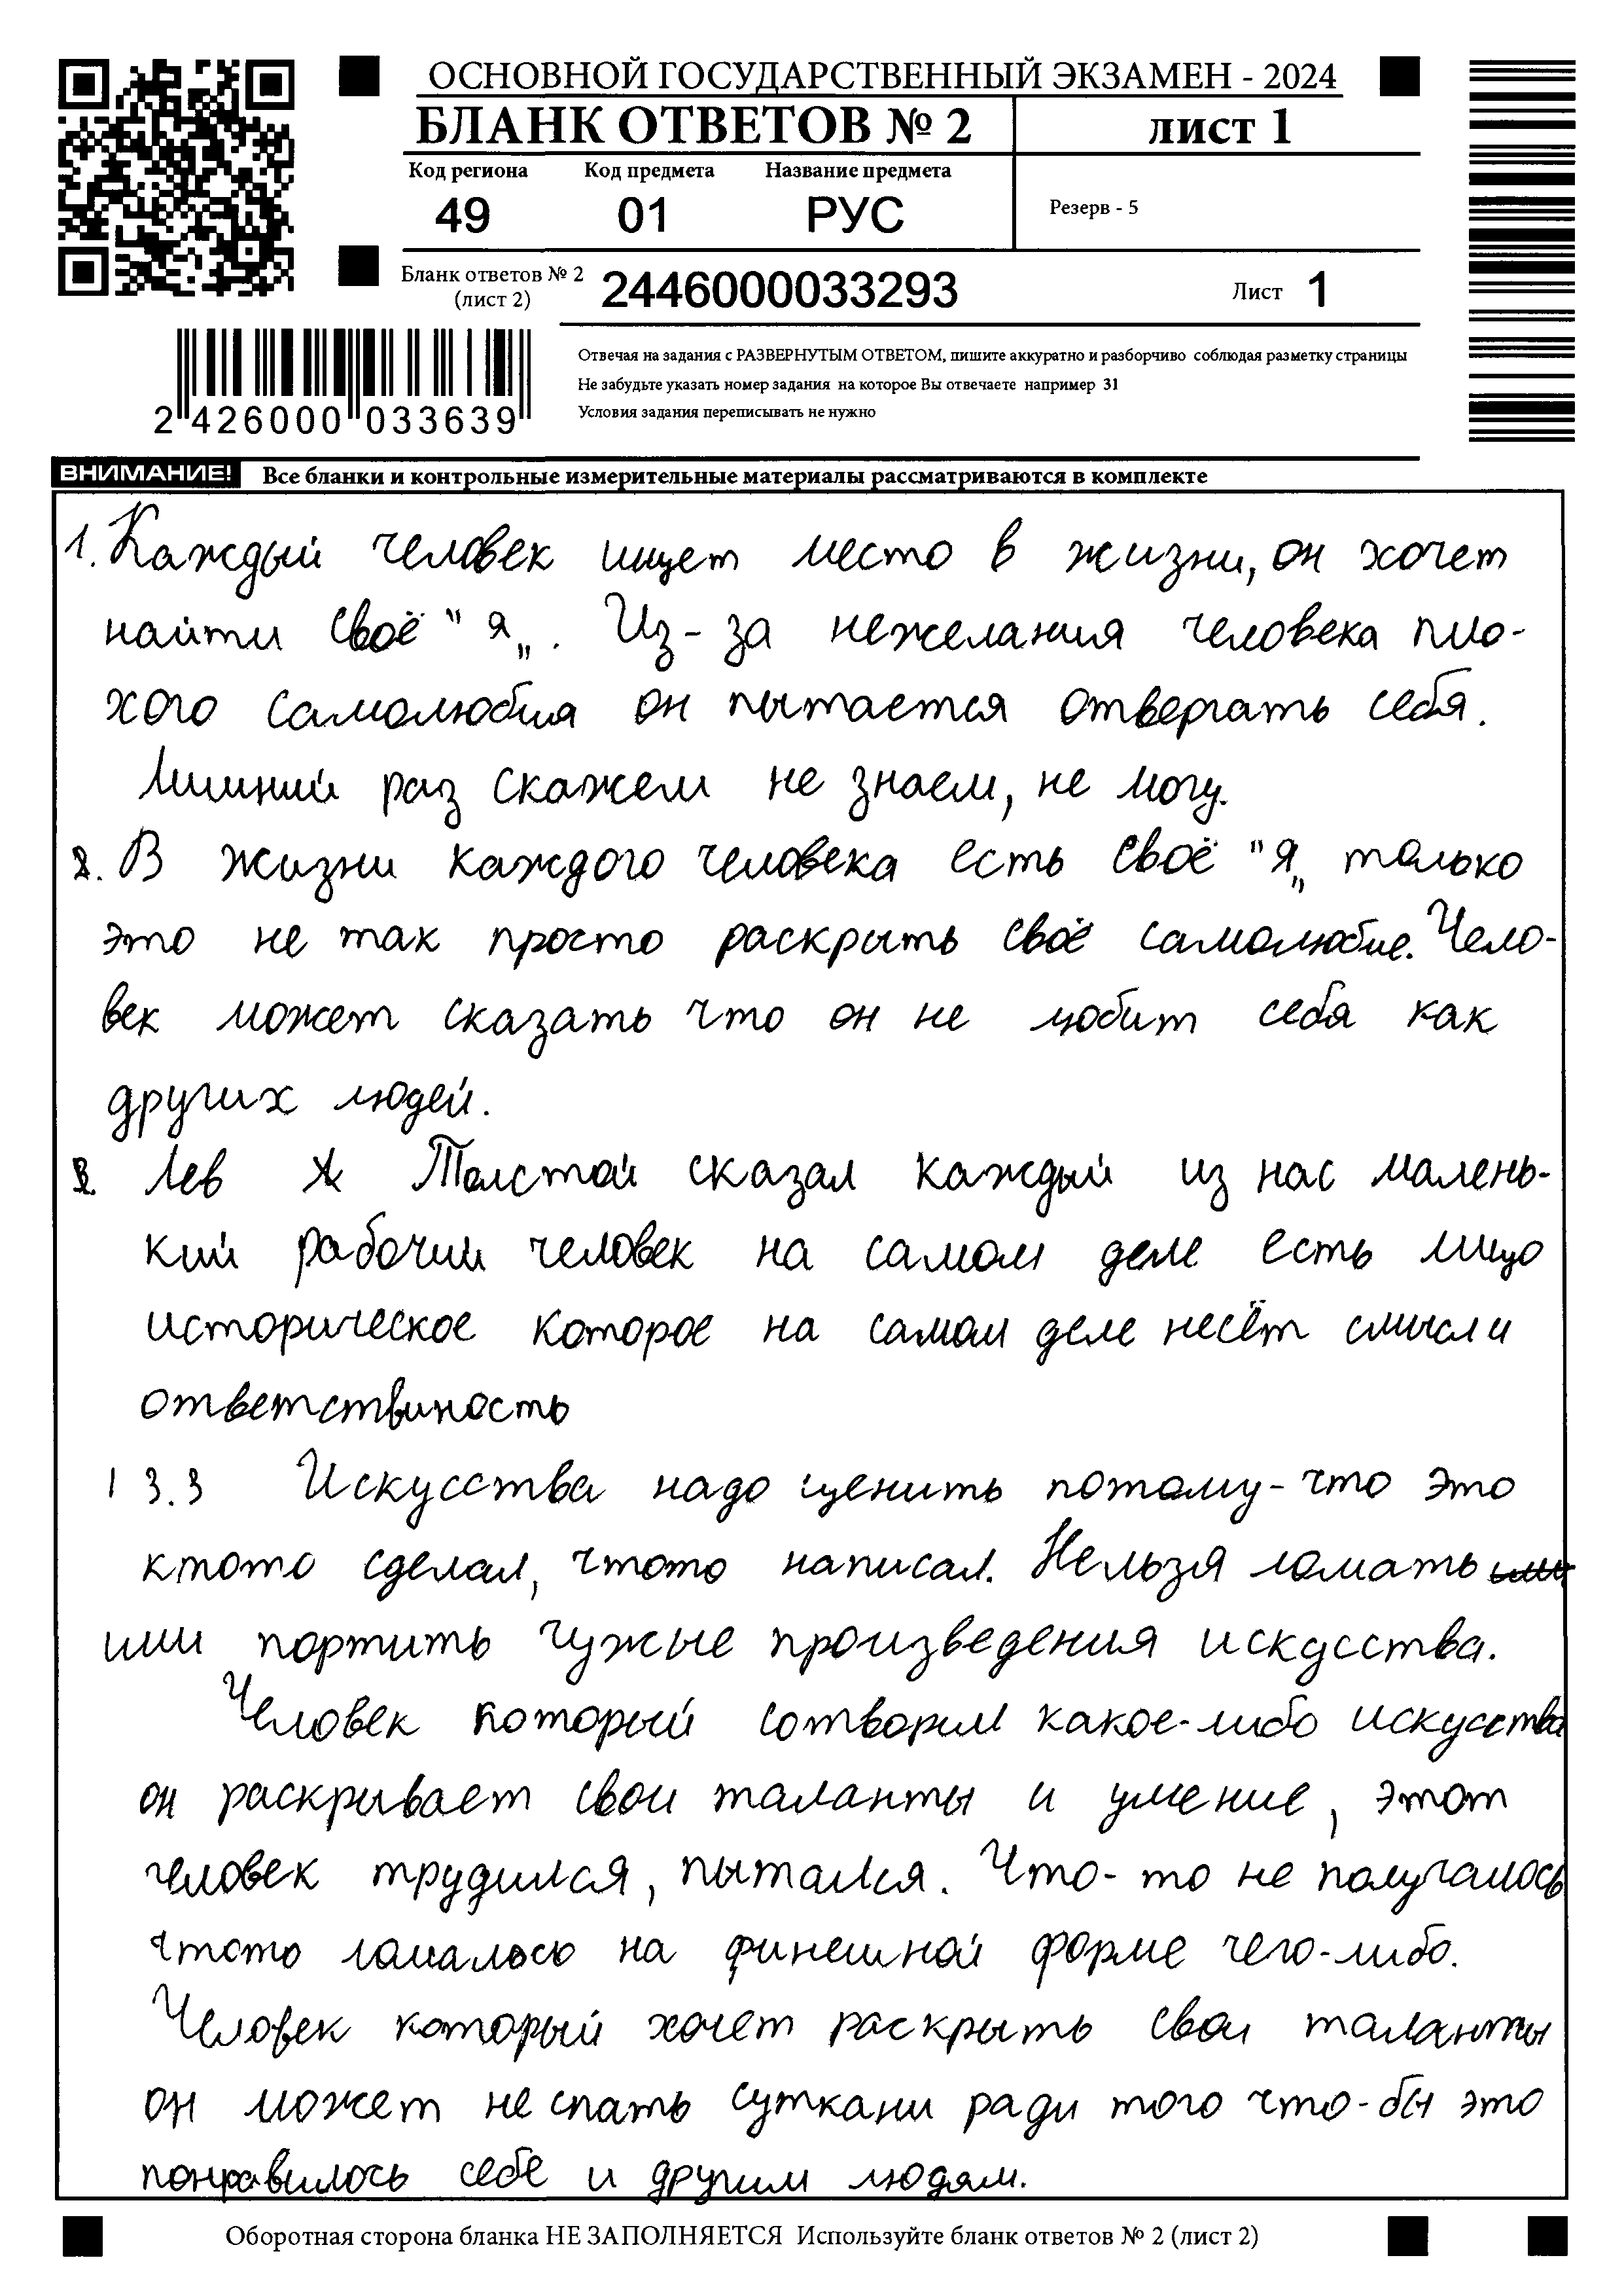 ОСНОВНОЙ ГОСУДАРСТВЕННЫЙ ЭКЗАМЕН - 2024
БЛАНК ОТВЕТОВ № 2 лист 1
Код региона Код предмета Название предмета
49 01 РУС Резерв - 5
Бланк ответов № 2 (лист 2) 2446000033293 Лист 1
Отвечая на задания с РАЗВЕРНУТЫМ ОТВЕТОМ, пишите аккуратно и разборчиво соблюдая разметку страницы
Не забудьте указать номер задания на которое Вы отвечаете например 31
Условия задания переписывать не нужно
2 426000 033639
ВНИМАНИЕ! Все бланки и контрольные измерительные материалы рассматриваются в комплекте
1. Каждый человек ищет место в жизни, он хочет
найти своё "я„. Из-за нежелания человека пло-
хого самолюбия он пытается отвергать себя.
Лишний раз скажем не знаем, не могу.
2. В жизни каждого человека есть своё "Я„ только
это не так просто раскрыть своё самолюбие. Чело-
век может сказать что он не любит себя как
других людей.
3. Лев Толстой сказал каждый из нас малень-
кий рабочий человек на самом деле есть лицо
историческое которое на самом деле несёт смысл и
ответствиность
13.3 Искусства надо ценить потому-что это
ктото сделал, чтото написал. Нельзя ломать
или портить чужые произведения искусства.
Человек который сотворил какое-либо искусства
он раскривает свои таланты и умение, этот
человек трудился, пытался. Что-то не получалось
чтото ломалось на финешной форме чего-либо.
Человек который хочет раскрыть свои таланты
он может не спать суткани ради того что-бы это
понравилось себе и другим людям.
Оборотная сторона бланка НЕ ЗАПОЛНЯЕТСЯ Используйте бланк ответов № 2 (лист 2)